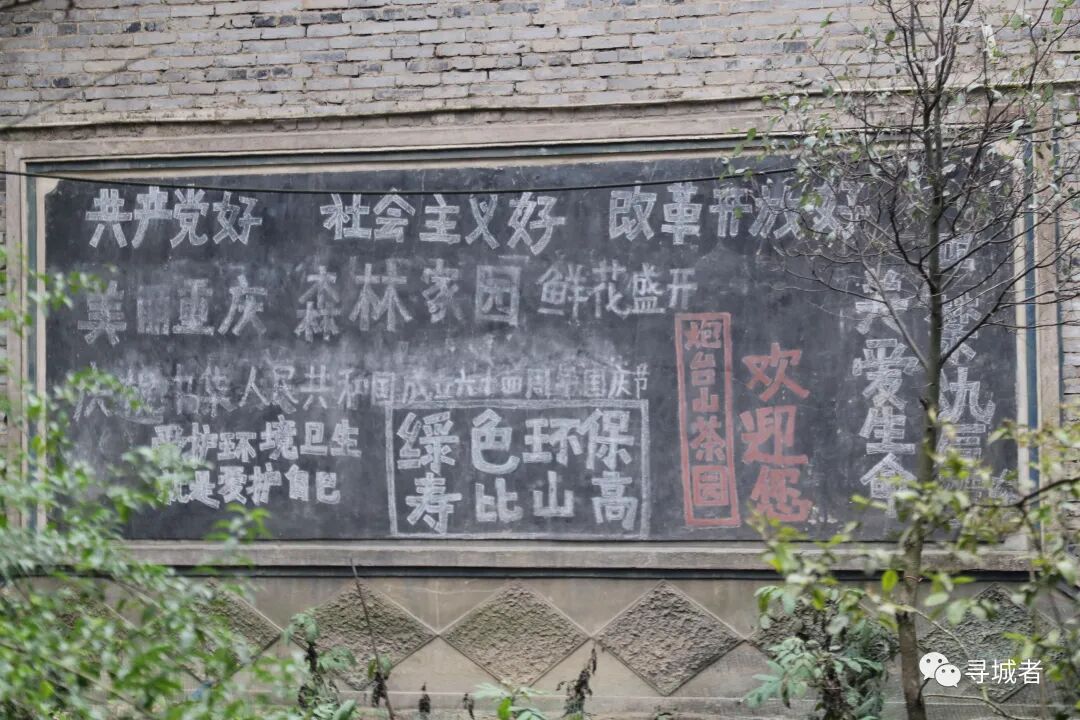 共产党好 社会主义好 改革开放好
美丽重庆 森林家园 鲜花盛开
庆祝中华人民共和国成立六十四周年国庆节
爱护环境卫生
就是爱护自己
绿色环保
寿比山高
炮台山茶园
欢迎您
关爱生命
寻城者